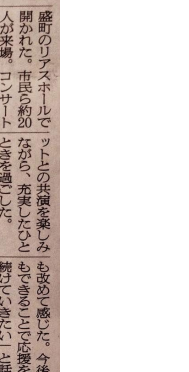 盛町のリアスホールで
開かれた。市民ら約20
人が来場。コンサート
ットとの共演を楽しみ
ながら、充実したひと
ときを過ごした。
も改めて感じた。今後
もできることで応援を
続けていきたい」と話